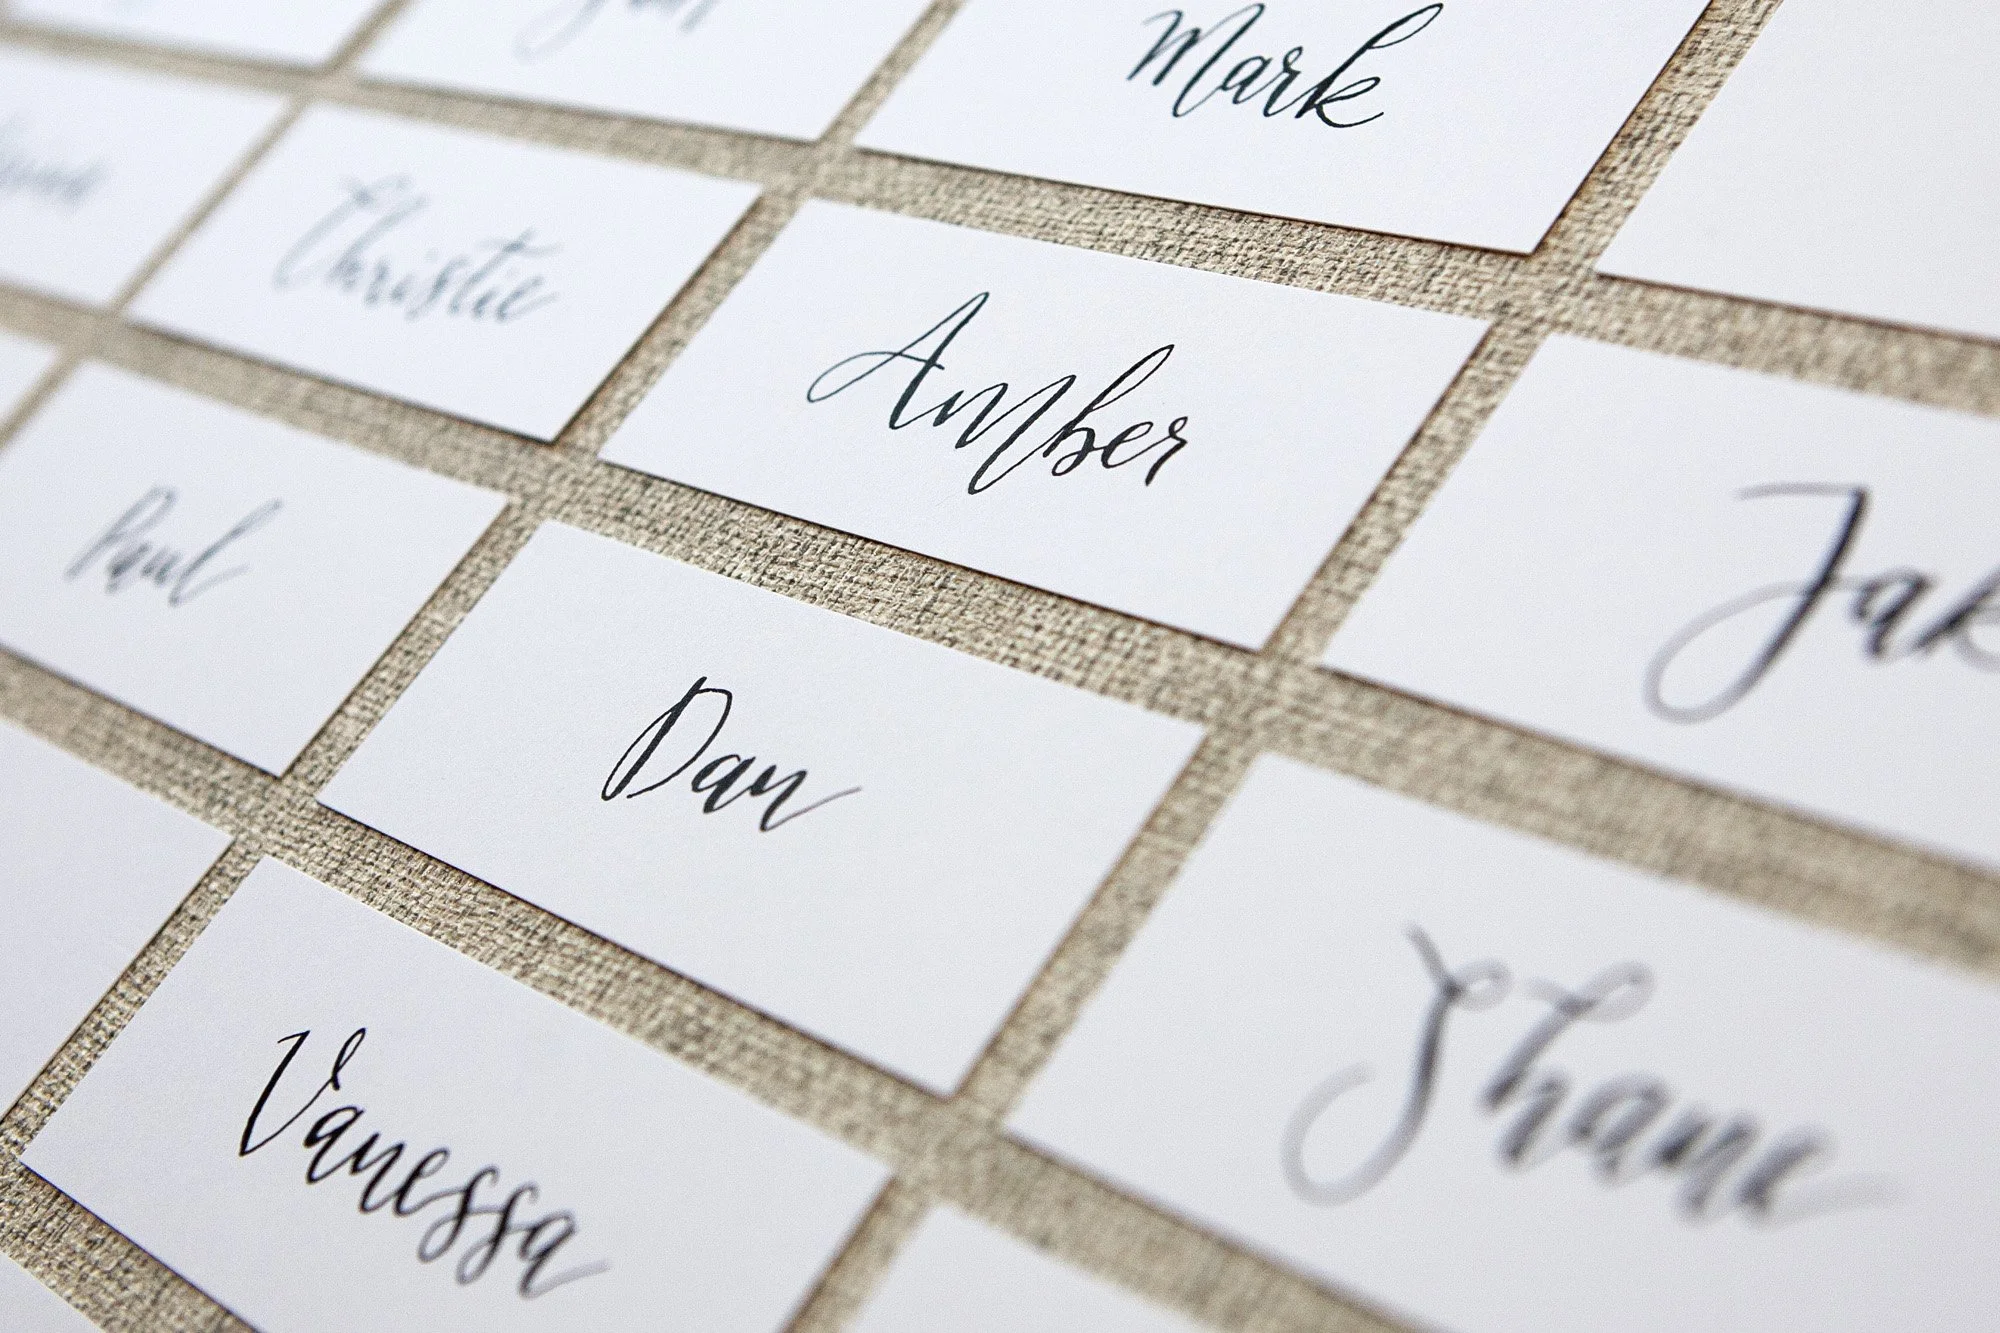 Mark
Christie
Amber
Jak
Paul
Dan
Shane
Vanessa